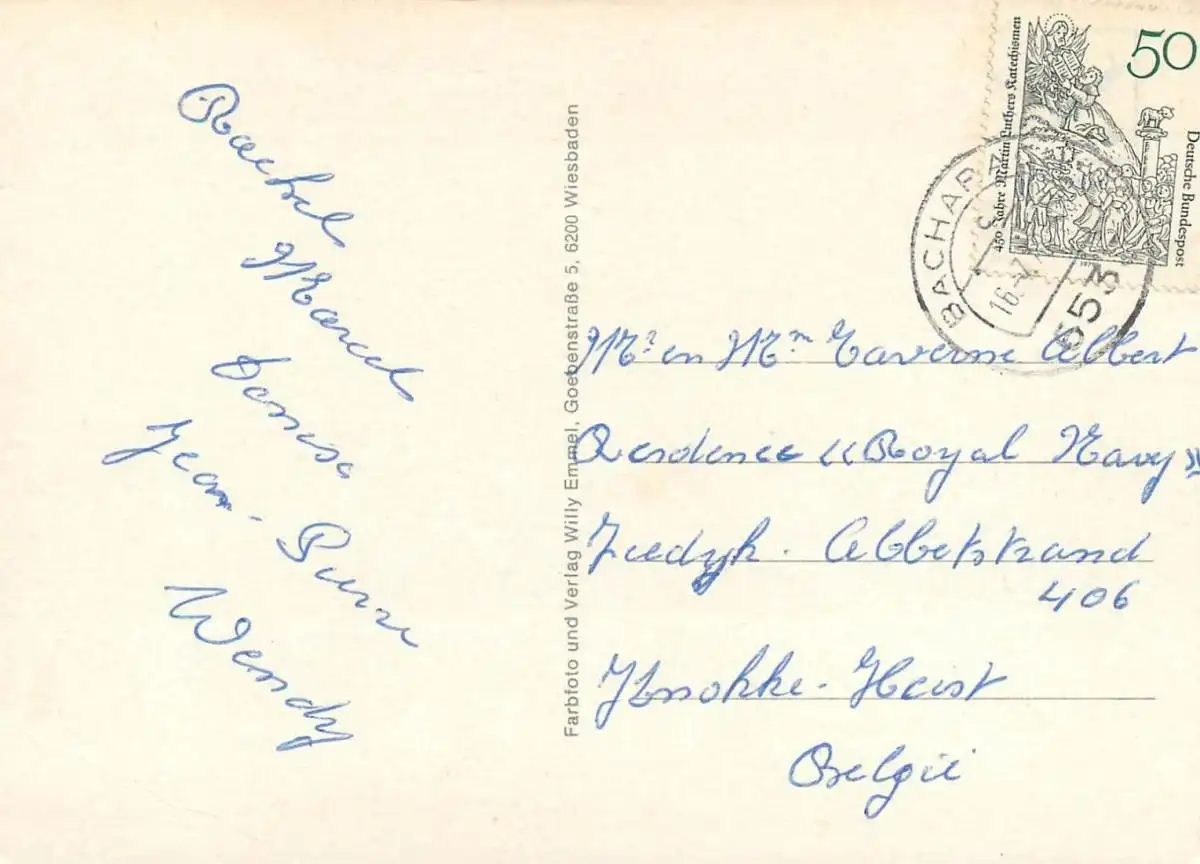 Rachel
Marcel
Denise
Jean-Pierre
Wendy
Farbfoto und Verlag Willy Emmel, Goebenstraße 5, 6200 Wiesbaden
450 Jahre Martin Luthers Katechismen
50
Deutsche Bundespost
BACHARA
16.-7
653
Mr en Mm Taverne Albert
Residence «Royal Navy»
Zeedyk. Albertstrand
406
Knokke-Heist
België